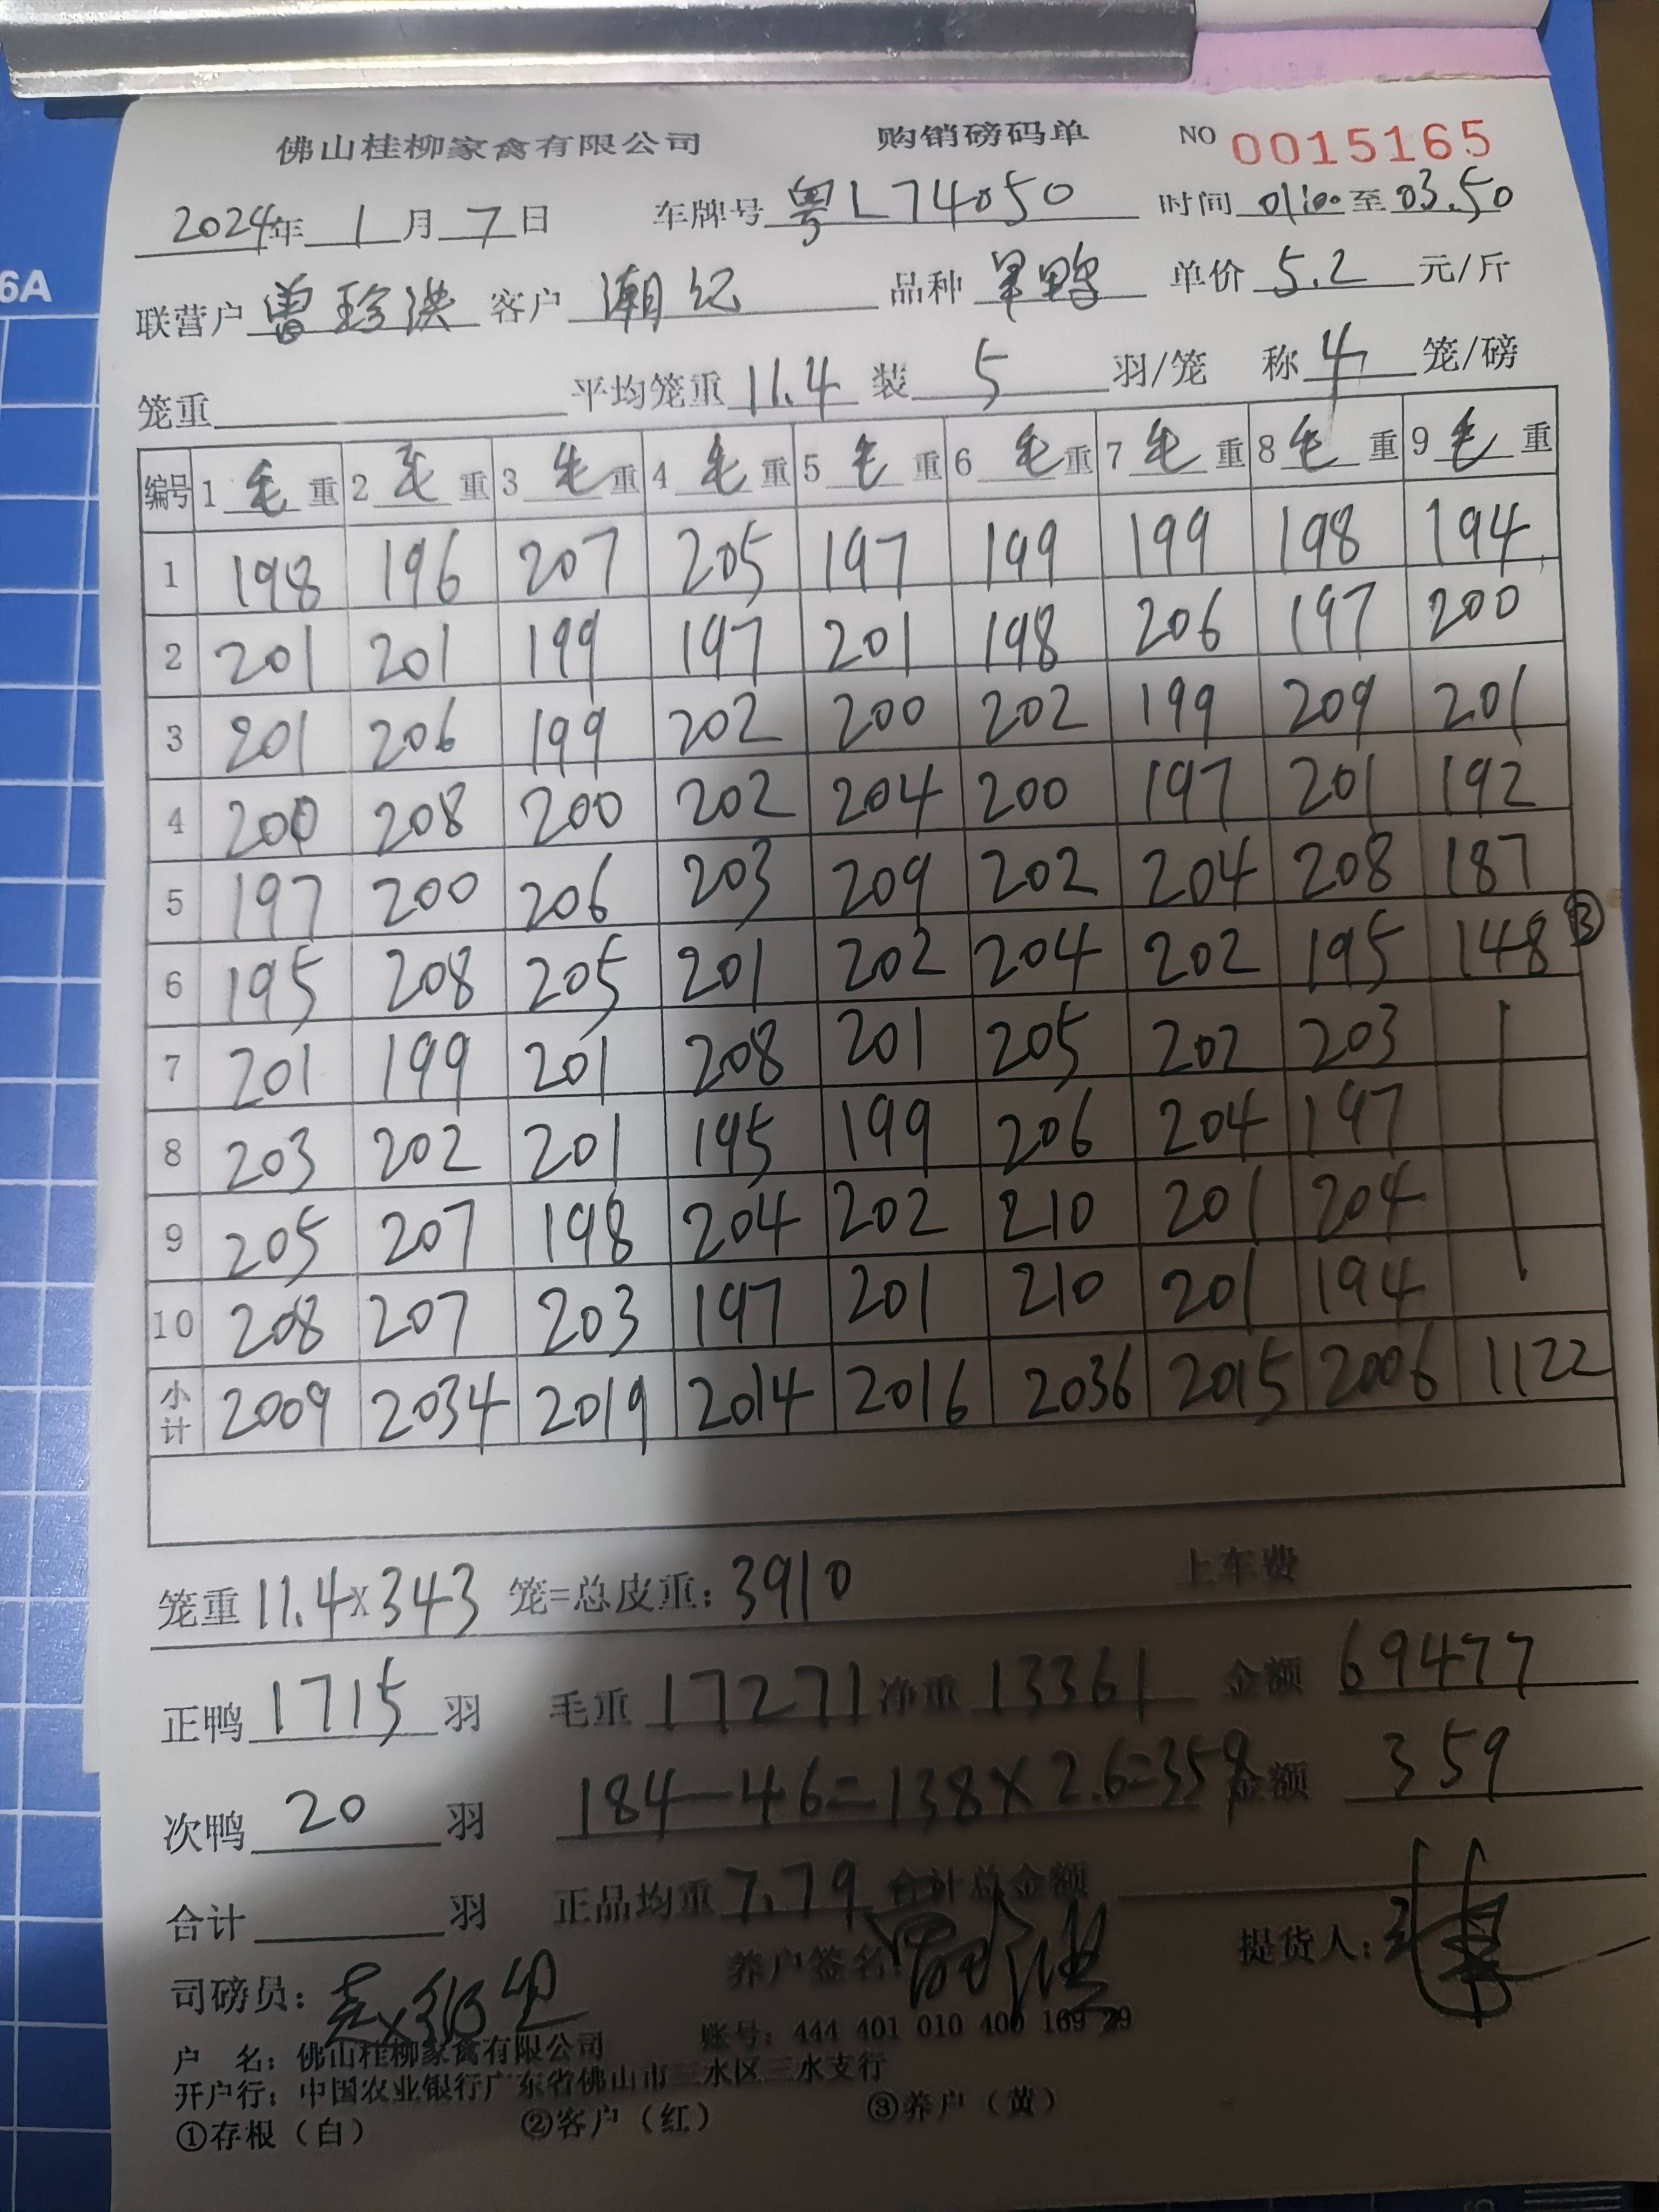 佛山桂柳家禽有限公司 购销磅码单 NO 0015165
2024年 1月 7日 车牌号 粤L74050 时间 01:00 至 03.50
联营户 曾珍洪 客户 潮记 品种 单价 5.2 元/斤
笼重 平均笼重 11.4 装 5 羽/笼 称 4 笼/磅
编号 1毛重 2毛重 3毛重 4毛重 5毛重 6毛重 7毛重 8毛重 9毛重
1 198 196 207 205 197 199 199 198 194
2 201 201 199 197 201 198 206 197 200
3 201 206 199 202 200 202 199 209 201
4 200 208 200 202 204 200 197 201 192
5 197 200 206 203 209 202 204 208 187
6 195 208 205 201 202 204 202 195 148 ③
7 201 199 201 208 201 205 202 203
8 203 202 201 195 199 206 204 197
9 205 207 198 204 202 210 201 204
10 208 207 203 197 201 210 201 194
小计 2009 2034 2019 2014 2016 2036 2015 2006 1122
笼重 11.4×343 笼=总皮重: 3910 上车费
正鸭 1715 羽 毛重 17271 净重 13361 金额 69477
次鸭 20 羽 184-46=138×2.6=359 金额 359
合计 羽 正品均重 7.79 合计总金额
司磅员: 养户签名 提货人:
户 名: 佛山桂柳家禽有限公司 账号: 444 401 010 400 169 29
开户行: 中国农业银行广东省佛山市三水区三水支行
①存根（白） ②客户（红） ③养户（黄）
6A